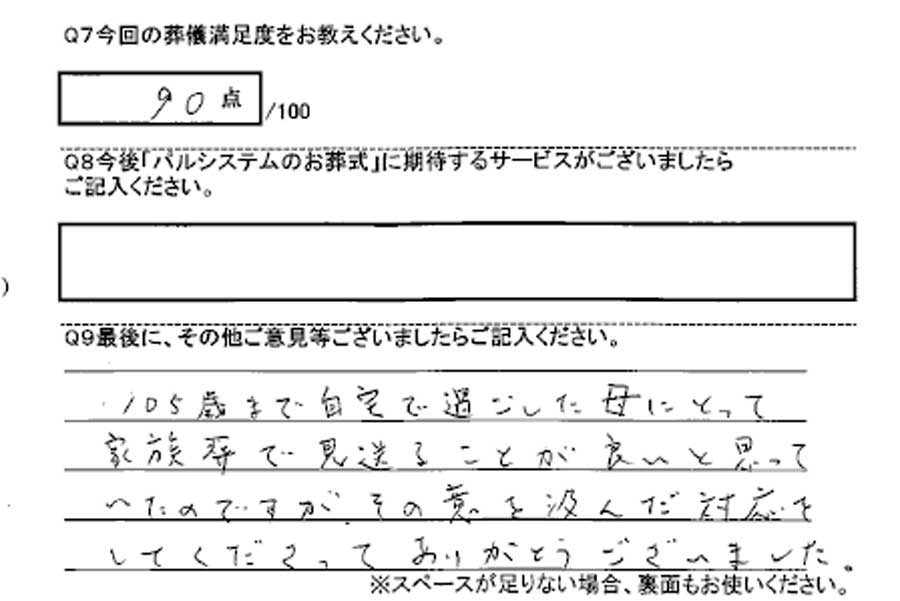 Q7今回の葬儀満足度をお教えください。
90点/100
Q8今後「パルシステムのお葬式」に期待するサービスがございましたら
ご記入ください。
)
Q9最後に、その他ご意見等ございましたらご記入ください。
105歳まで自宅で過ごした母にとって
家族葬で見送ることが良いと思って
いたのですが、その意を汲んだ対応を
してくださってありがとうございました。
※スペースが足りない場合、裏面もお使いください。